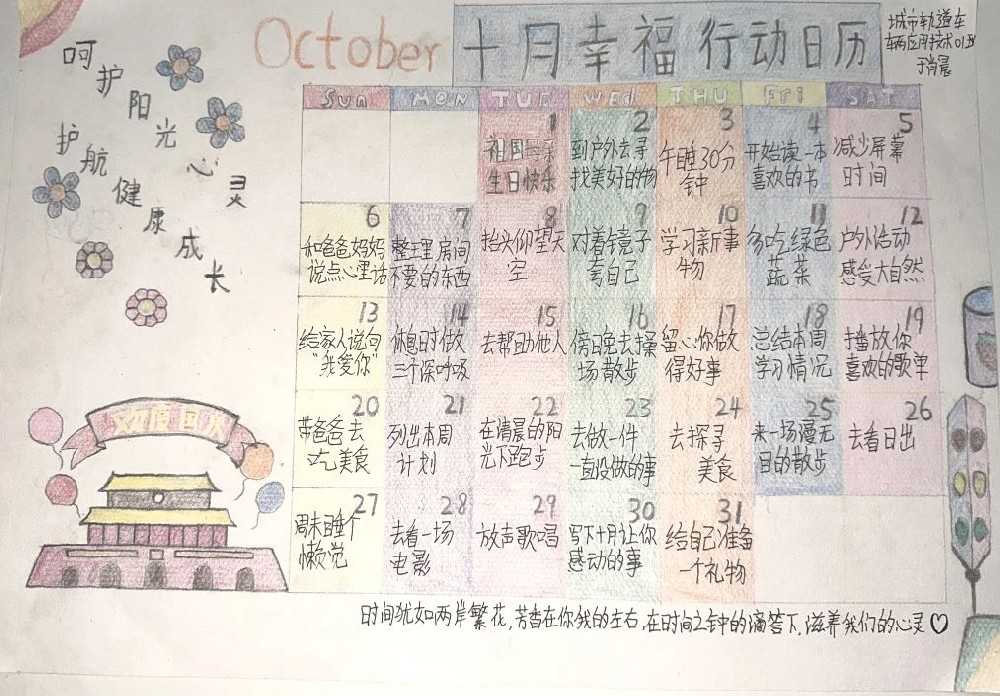 October 十月幸福行动日历
城市轨道车
辆应用技术01班
于肖晨
呵护阳光心灵
护航健康成长
Sun MON TUE WED THU Fri SAT
1
祖国母亲
生日快乐
2
到户外去寻
找美好的物
3
午睡30分
钟
4
开始读一本
喜欢的书
5
减少屏幕
时间
6
和爸爸妈妈
说点心里话
7
整理房间
不要的东西
8
抬头仰望天
空
9
对着镜子
夸自己
10
学习新事
物
11
多吃绿色
蔬菜
12
户外活动
感受大自然
13
给家人说句
“我爱你”
14
休息时做
三个深呼吸
15
去帮助他人
16
傍晚去操
场散步
17
留心你做
得好事
18
总结本周
学习情况
19
播放你
喜欢的歌单
20
带爸爸去
吃美食
21
列出本周
计划
22
在清晨的阳
光下跑步
23
去做一件
一直没做的事
24
去探寻
美食
25
来一场漫无
目的散步
26
去看日出
27
周末睡个
懒觉
28
去看一场
电影
29
放声歌唱
30
写下十月让你
感动的事
31
给自己准备
一个礼物
欢度国庆
时间犹如两岸繁花,芳香在你我的左右,在时间之钟的滴答下,滋养我们的心灵♡